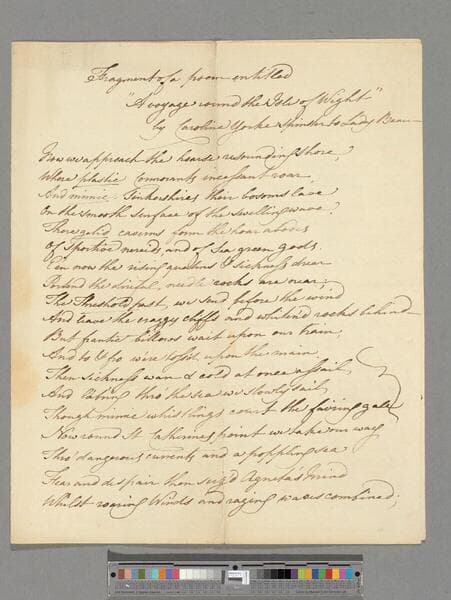 Fragment of a poem entitled
"A voyage round the Isle of Wight"
by Caroline Yorke Spinster to Lady Beau—
Now we approach the hoarse resounding Shore,
Where plastic Cormorants incessant roar,
And mimic Tinkershires their bosoms lave
On the smooth surface of the swelling wave.
There gelid caverns form the hoar abodes
Of Sportive nereids, and of Sea green gods.
E'en now the rising qualms of Sickness drear
Portend the direful, needle rocks are near;
The Threshold past, we send before the wind
And leave the craggy cliffs and whiten'd rocks behind—
But frantic billows wait upon our train,
And to & fro we're toss'd, upon the main
Then Sickness wan & cold at once assail,
And lab'ring thro' the sea we slowly sail
Though mimic whistlings court the fairing gale
Now round St Catherines point we take our way
Thro' dangerous currents and a poppling sea
Fear and despair then seiz'd Agneta's mind
Whilst roaring Winds and raging waves combined;